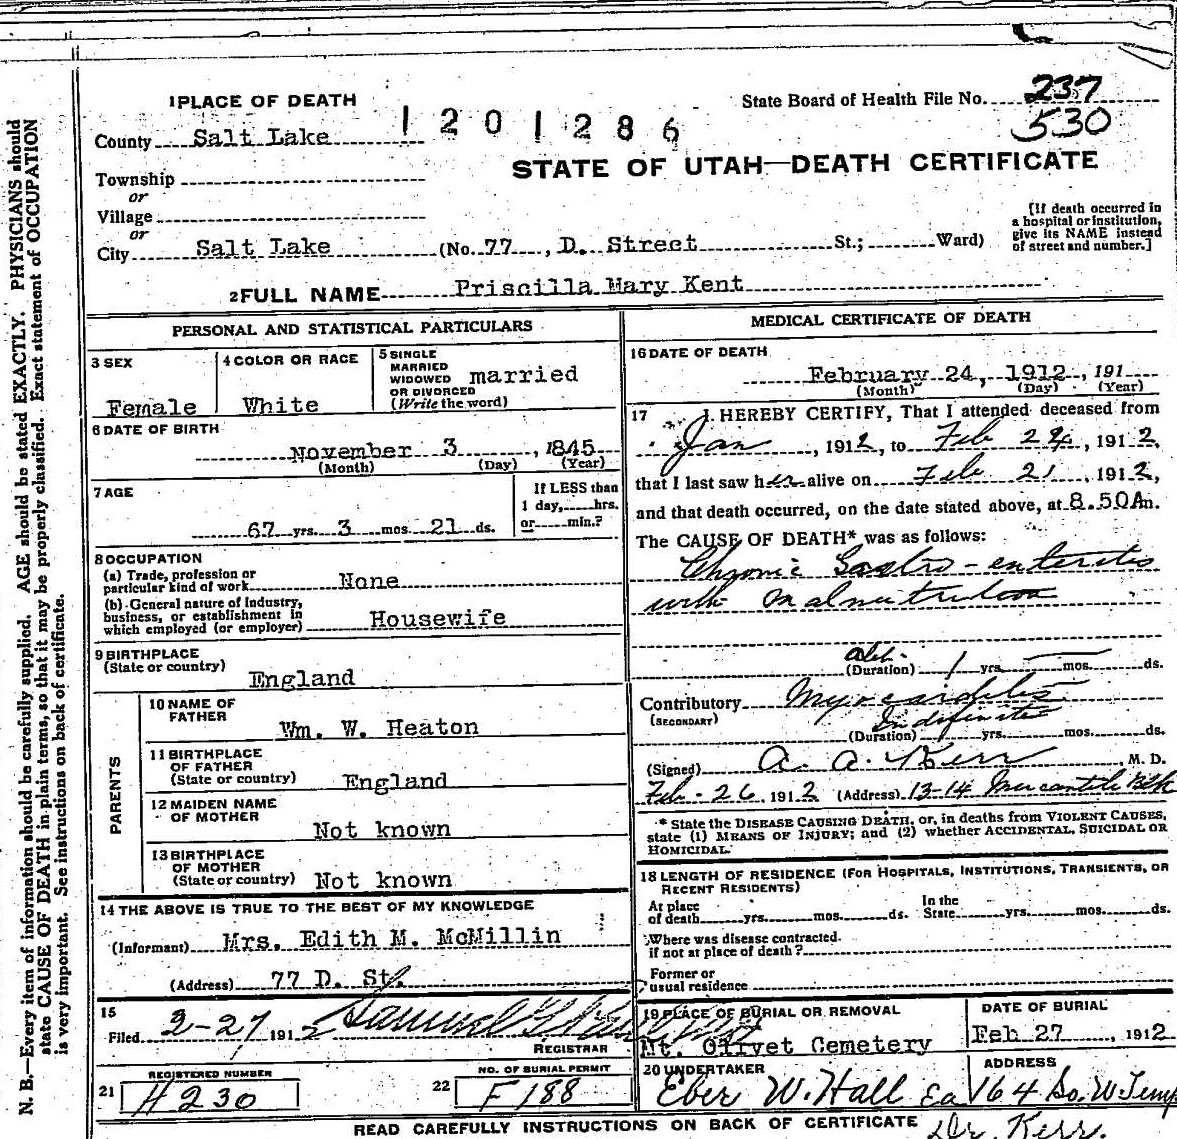 237
1 PLACE OF DEATH
State Board of Health File No.
530
County Salt Lake
1201286
STATE OF UTAH—DEATH CERTIFICATE
Township
or
Village
or
City Salt Lake (No. 77, D. Street St.; Ward)
[If death occurred in
a hospital or institution,
give its NAME instead
of street and number.]
2 FULL NAME Priscilla Mary Kent
PERSONAL AND STATISTICAL PARTICULARS
3 SEX
Female
4 COLOR OR RACE
White
5 SINGLE
MARRIED
WIDOWED
OR DIVORCED
(Write the word)
married
6 DATE OF BIRTH
November 3, 1845
(Month) (Day) (Year)
7 AGE
67 yrs. 3 mos. 21 ds.
If LESS than
1 day,.....hrs.
or.....min.?
8 OCCUPATION
(a) Trade, profession or
particular kind of work None
(b) General nature of industry,
business, or establishment in
which employed (or employer) Housewife
9 BIRTHPLACE
(State or country)
England
PARENTS
10 NAME OF
FATHER
Wm. W. Heaton
11 BIRTHPLACE
OF FATHER
(State or country) England
12 MAIDEN NAME
OF MOTHER
Not known
13 BIRTHPLACE
OF MOTHER
(State or country) Not known
14 THE ABOVE IS TRUE TO THE BEST OF MY KNOWLEDGE
(Informant) Mrs. Edith M. McMillin
(Address) 77 D. St.
15
Filed 2-27, 1912 Samuel G.
REGISTRAR
21 REGISTERED NUMBER
H 230
22 NO. OF BURIAL PERMIT
F 188
MEDICAL CERTIFICATE OF DEATH
16 DATE OF DEATH
February 24, 1912, 191
(Month) (Day) (Year)
17 I HEREBY CERTIFY, That I attended deceased from
Jan, 1912, to Feb 24, 1912,
that I last saw her alive on Feb 21, 1912,
and that death occurred, on the date stated above, at 8.50 A m.
The CAUSE OF DEATH* was as follows:
Chronic Gastro-enteritis
with Malnutrition
abt.
(Duration) 1 yrs. mos. ds.
Contributory Myocarditis
(SECONDARY) Indefinite
(Duration) yrs. mos. ds.
(Signed) A. A. Kerr, M. D.
Feb - 26, 1912 (Address) 13-14 Mercantile Blk
* State the DISEASE CAUSING DEATH, or, in deaths from VIOLENT CAUSES,
state (1) MEANS OF INJURY; and (2) whether ACCIDENTAL, SUICIDAL OR
HOMICIDAL.
18 LENGTH OF RESIDENCE (FOR HOSPITALS, INSTITUTIONS, TRANSIENTS, OR
RECENT RESIDENTS)
At place
of death yrs. mos. ds.
In the
State yrs. mos. ds.
Where was disease contracted.
if not at place of death?
Former or
usual residence
19 PLACE OF BURIAL OR REMOVAL
Mt. Olivet Cemetery
DATE OF BURIAL
Feb 27, 1912
20 UNDERTAKER
Eber W. Hall
ADDRESS
164 So. W. Temp
READ CAREFULLY INSTRUCTIONS ON BACK OF CERTIFICATE
Dr. Kerr.
N. B.—Every item of information should be carefully supplied. AGE should be stated EXACTLY. PHYSICIANS should
state CAUSE OF DEATH in plain terms, so that it may be properly classified. Exact statement of OCCUPATION
is very important. See instructions on back of certificate.